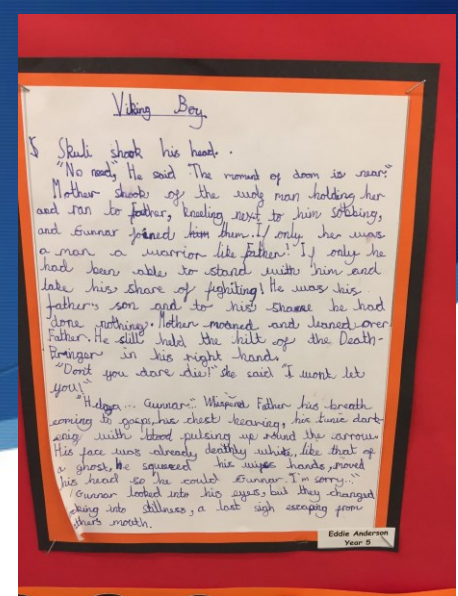 Viking Boy
Skuli shook his head.
"No need, He said "The moment of doom is near."
Mother shook of the man holding her
and ran to father, kneeling next to him sobbing,
and Gunnar joined him them. If only he was
a man a warrior like father! If only he
had been able to stand with him and
take his share of fighiting! He was his
father's son and to his shame he had
done nothing. Mother moaned and leaned over
Father. He still held the hilt of the Death-
Bringer in his right hand.
"Don't you dare die!" she said "I wont let
you!"
"Helga... Gunnar.." Father his breath
coming in gasps, his chest heaving, his tunic dark-
enig with blood pulsing up round the arrow.
His face was already deathly white, like that of
a ghost, he squeezed his hands, moved
his head so he could Gunnar. "I'm sorry..."
Gunnar looked into his eyes, but they changed
into stillness, a last sigh escaping from
mouth.
Eddie Anderson
Year 5